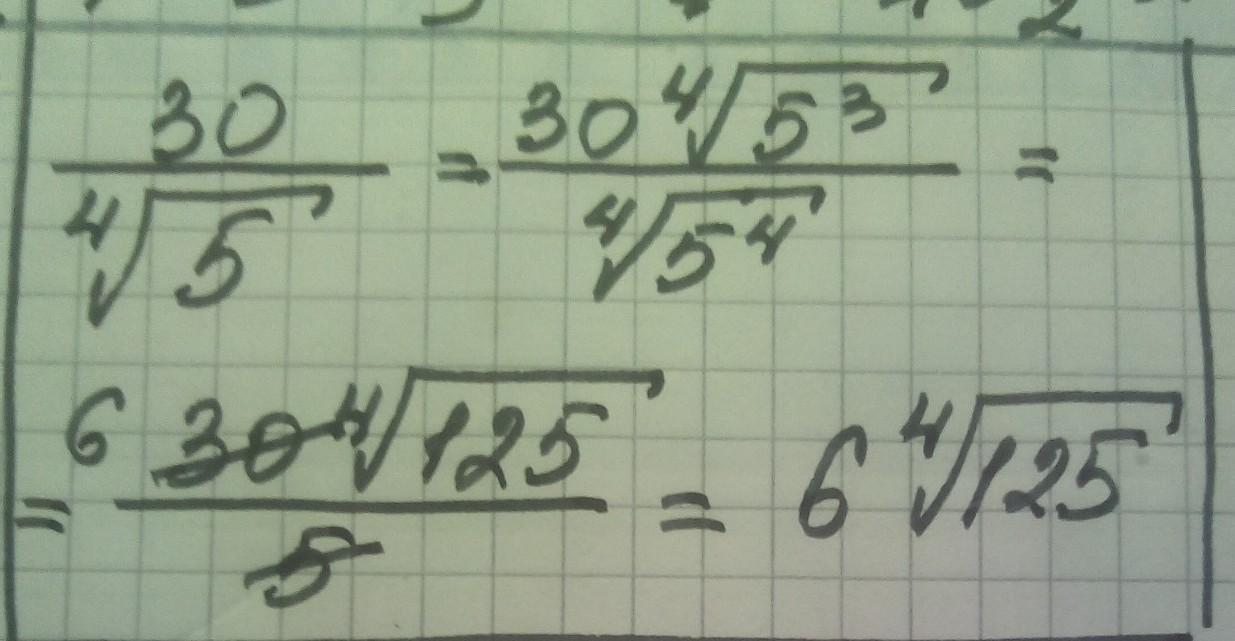 30/∜5 = 30∜5³/∜5⁴ =
= 6 30∜125/5 = 6∜125